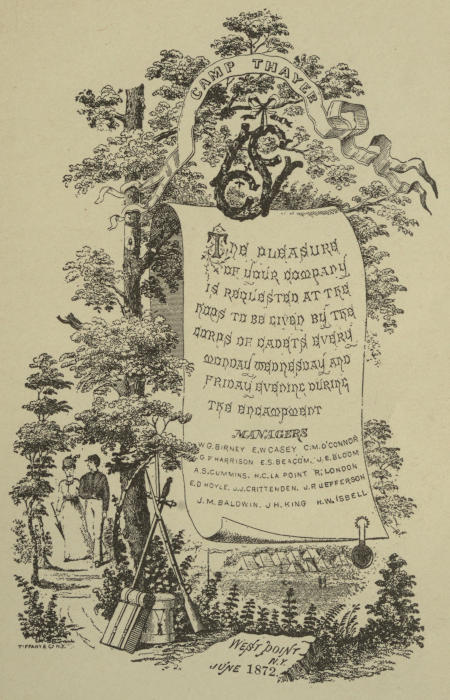 CAMP THAYER
The pleasure
of your company
is requested at the
hops to be given by the
Corps of Cadets every
Monday Wednesday and
Friday evening during
the encampment
MANAGERS
W. G. BIRNEY E. W CASEY C. M. O'CONNOR
G. F HARRISON E. S. BEACOM, J. E. BLOOM
A. S. CUMMINS, H. C. LA POINT R, LONDON
E. D HOYLE, J. J. CRITTENDEN, J. P. JEFFERSON
J. M. BALDWIN, J H. KING H. W. ISBELL
TIFFANY & CO N.Y.
WEST POINT
N.Y.
JUNE 1872.